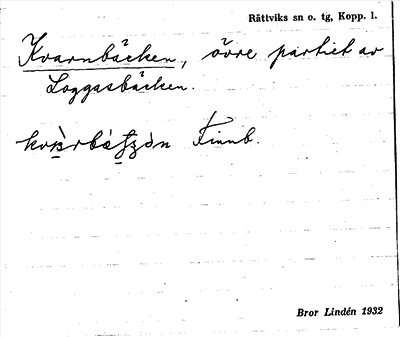 Rättviks sn o. tg, Kopp. l.
Kvarnbäcken, övre partiet av
Loggasbäcken.
Finnb.
Bror Lindén 1932